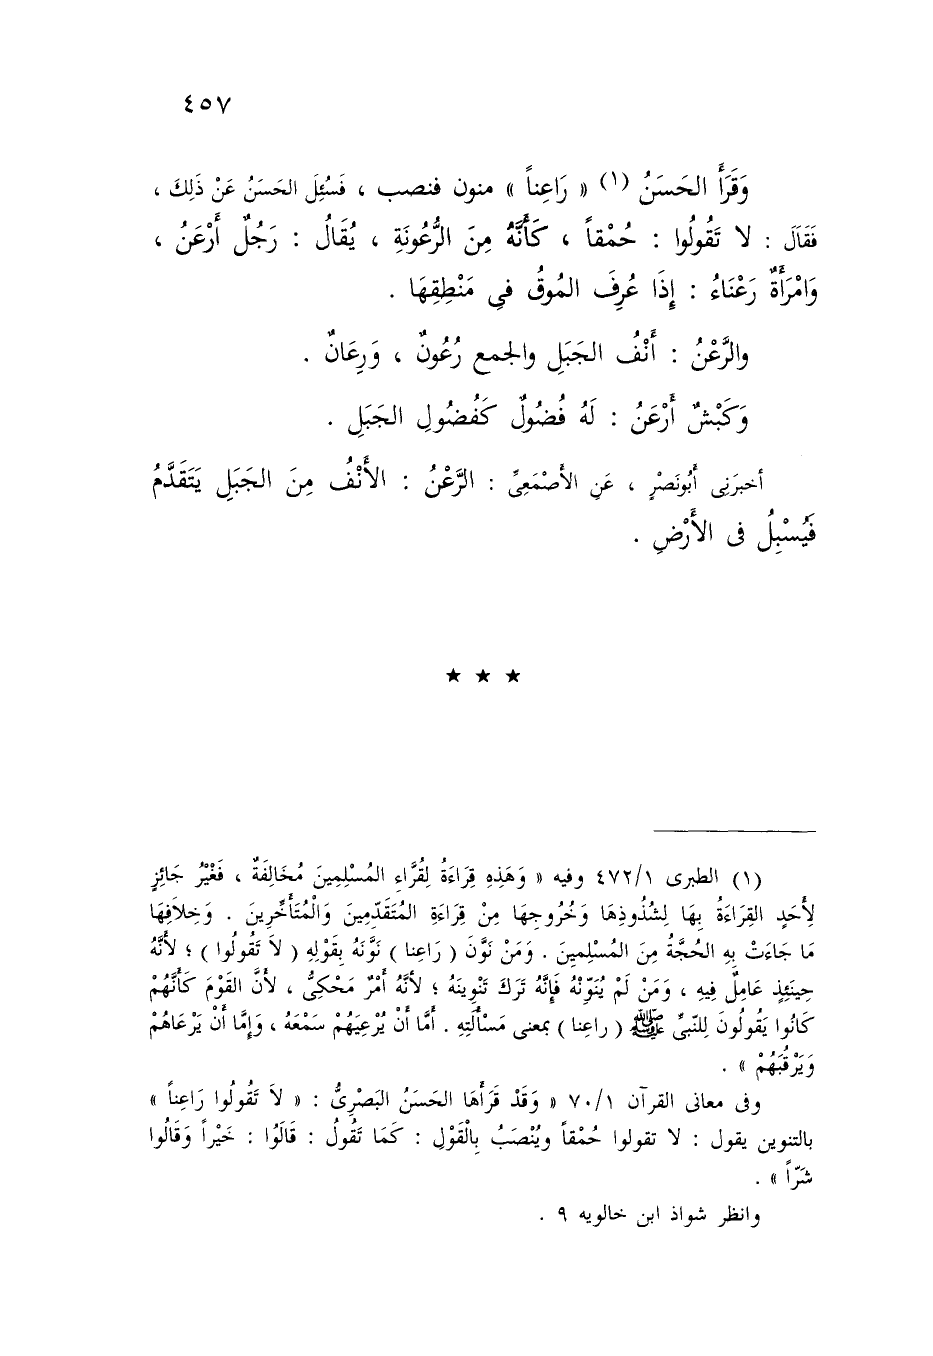 ٤٥٧
وَقَرَأَ الحَسَنُ (١) « رَاعِناً » منون فنصب ، فَسُئِلَ الحَسَنُ عَنْ ذَلِكَ ،
فَقَالَ : لا تَقُولُوا : حُمْقاً ، كَأَنَّهُ مِنَ الرُّعُونَةِ ، يُقَالُ : رَجُلٌ أَرْعَنُ ،
وَامْرَأَةٌ رَعْنَاءُ : إِذَا عُرِفَ المُوقُ فىِ مَنْطِقِهَا .
والرَّعْنُ : أَنْفُ الجَبَلِ والجمع رُعُونٌ ، وَرِعَانٌ .
وَكَبْشٌ أَرْعَنُ : لَهُ فُضُولٌ كَفُضُولِ الجَبَلِ .
أخبرَنِى أَبُونَصْرٍ ، عَنِ الأَصْمَعِىِّ : الرَّعْنُ : الأَنْفُ مِنَ الجَبَلِ يَتَقَدَّمُ
فَيُسْبِلُ فى الأَرْضِ .
★ ★ ★
(١) الطبرى ٤٧٢/١ وفيه « وَهَذِهِ قِرَاءَةُ لِقُرَّاءِ المُسْلِمِينَ مُخَالِفَةٌ ، فَغَيْرُ جَائِزٍ
لِأَحَدٍ القِرَاءَةُ بِهَا لِشُذُوذِهَا وَخُرُوجِهَا مِنْ قِرَاءَةِ المُتَقَدِّمِينَ وَالْمُتَأَخِّرِينَ . وَخِلاَفِهَا
مَا جَاءَتْ بِهِ الحُجَّةُ مِنَ المُسْلِمِينَ . وَمَنْ نَوَّنَ ( رَاعِنا ) نَوَّنَهُ بِقَوْلِهِ ( لاَ تَقُولُوا ) ؛ لأَنَّهُ
حِينَئِذٍ عَامِلٌ فِيهِ ، وَمَنْ لَمْ يُنَوِّنْهُ فَإِنَّهُ تَرَكَ تَنْوِينَهُ ؛ لأنَّهُ أَمْرٌ مَحْكِىٌّ ، لأَنَّ القَوْمَ كَأَنَّهُمْ
كَانُوا يَقُولُونَ لِلنّبىِّ ﷺ ( راعِنا ) بمعنى مَسْأَلَتِهِ . أَمَّا أَنْ يُرْعِيَهُمْ سَمْعَهُ ، وَإِمَّا أَنْ يَرْعَاهُمْ
وَيَرْقُبَهُمْ » .
وفى معانى القرآن ٧٠/١ « وَقَدْ قَرَأَهَا الحَسَنُ البَصْرِىُّ : « لاَ تَقُولُوا رَاعِناً »
بالتنوين يقول : لا تقولوا حُمْقاً ويُنْصَبُ بِالْقَوْلِ : كَمَا تَقُولُ : قَالَوُا : خَيْراً وَقَالُوا
شَرّاً » .
وانظر شواذ ابن خالويه ٩ .